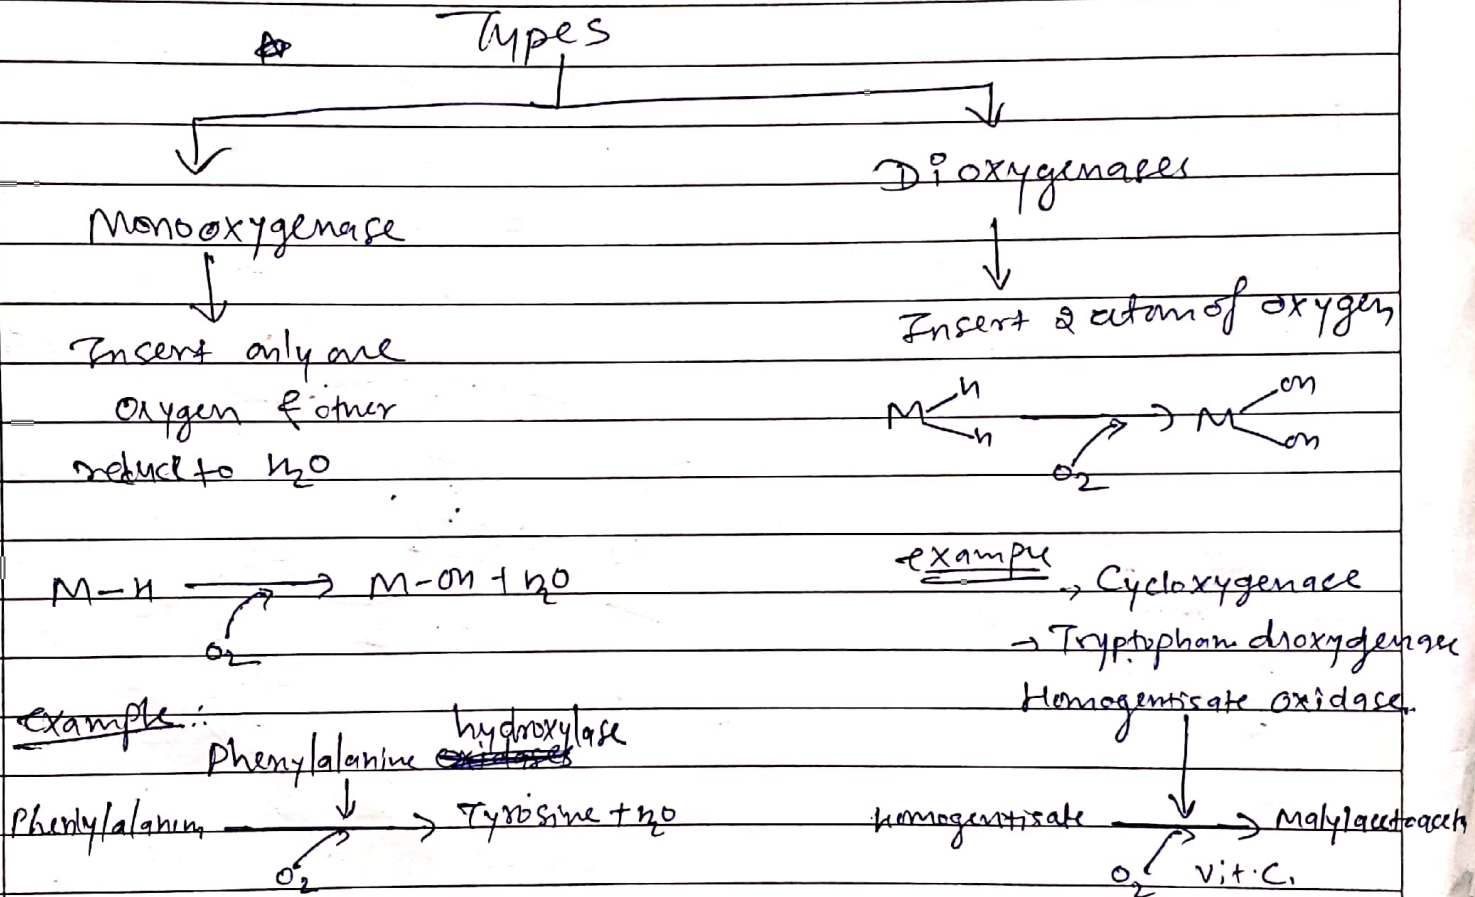 Types
Monooxygenase
Insert only one
Oxygen & other
reduce to H2O
M-H → M-OH + H2O
O2
example :-
Phenylalanine hydroxylase
Phenlylalanin → Tyrosine + H2O
O2
Dioxygenases
Insert 2 atom of oxygen
M H H → M OH OH
O2
example
→ Cycloxygenase
→ Tryptophan dioxygenase
Homogentisate oxidase
Homogentisate → Malylacetoaceta
O2 Vit.C.